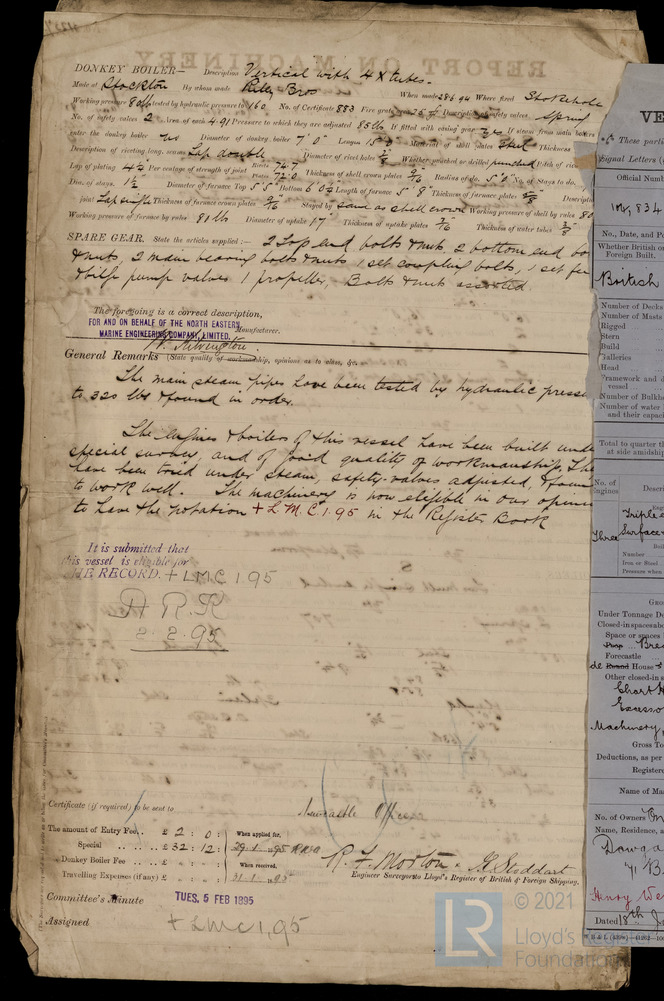 REPORT ON MACHINERY
DONKEY BOILER— Description Vertical with 4 X tubes.
Made at Stockton By whom made Riley Bros When made 28.6.94 Where fixed Stokehole
Working pressure 80 lbs tested by hydraulic pressure to 160 No. of Certificate 883 Fire grate area Description of safety valves Spring
No. of safety valves 2 Area of each 4.91 Pressure to which they are adjusted 85 lbs If fitted with easing gear yes If steam from main boilers
enter the donkey boiler no Diameter of donkey boiler 7' 0" Length Material of shell plates Steel Thickness
Description of riveting long. seams Lap double Diameter of rivet holes Whether punched or drilled punched Pitch of rivets
Lap of plating 4½ Per centage of strength of joint Rivets 74.7 Plates 72.0 Thickness of shell crown plates 9/16 Radius of do. 5' 0" No. of Stays to do.
Dia. of stays. 1½ Diameter of furnace Top 5' 5" Bottom 6' 0½ Length of furnace 5' 8" Thickness of furnace plates Description
joint Lap single Thickness of furnace crown plates 9/16 Stayed by same as shell crown Working pressure of shell by rules 80
Working pressure of furnace by rules 81 lbs Diameter of uptake 17" Thickness of uptake plates 7/16 Thickness of water tubes 3/8
SPARE GEAR. State the articles supplied:— 2 Top end bolts & nuts, 2 bottom end bo
& nuts, 2 main bearing bolts & nuts 1 set coupling bolts, 1 set fee
& bilge pump valves 1 propeller, Bolts & nuts assorted
The foregoing is a correct description,
FOR AND ON BEHALF OF THE NORTH EASTERN
MARINE ENGINEERING COMPANY, LIMITED. Manufacturer.
General Remarks (State quality of workmanship, opinions as to class, &c.
The main steam pipes have been tested by hydraulic pressure
to 320 lbs & found in order.
The Engines & boilers of this vessel have been built under
special survey, and of good quality of workmanship, The
have been tried under steam, safety-valves adjusted, & found
to work well. The machinery is now eligible in our opinion
to have the notation + L.M.C 1.95 in the Register Book
It is submitted that
this vessel is eligible for
THE RECORD. + LMC 1.95
2.2.95
Certificate (if required) to be sent to Newcastle Office
The amount of Entry Fee.. £ 2 : 0 : When applied for,
Special .. £ 32 : 12 : 29.1.95
Donkey Boiler Fee .. £ : : When received,
Travelling Expenses (if any) £ : : 31.1.95
R. F. Morton. Stoddart
Engineer Surveyors to Lloyd's Register of British & Foreign Shipping.
Committee's Minute TUES. 5 FEB 1895
Assigned + LMC 1,95
VE
These parti
Signal Letters (
Official Numb
No., Date, and Po
Whether British or
Foreign Built.
British
Number of Decks
Number of Masts
Rigged
Stern
Build
Galleries
Head
Framework and
vessel
Number of Bulkh
Number of water
and their capac
Total to quarter t
at side amidship
No. of
Engines Descri
Three Triple
Surface
Number
Iron or Steel
Pressure when
GRO
Under Tonnage De
Closed-in spaces abo
Space or spaces
Poop Brea
Forecastle
de Round House
Other closed-in s
Chart H
Excess o
Machinery,
Gross To
Deductions, as per
Registere
Name of Mas
No. of Owners
Name, Residence, a
Henry We
Dated 18th Ja
LR
© 2021
Lloyd's Register
Foundation